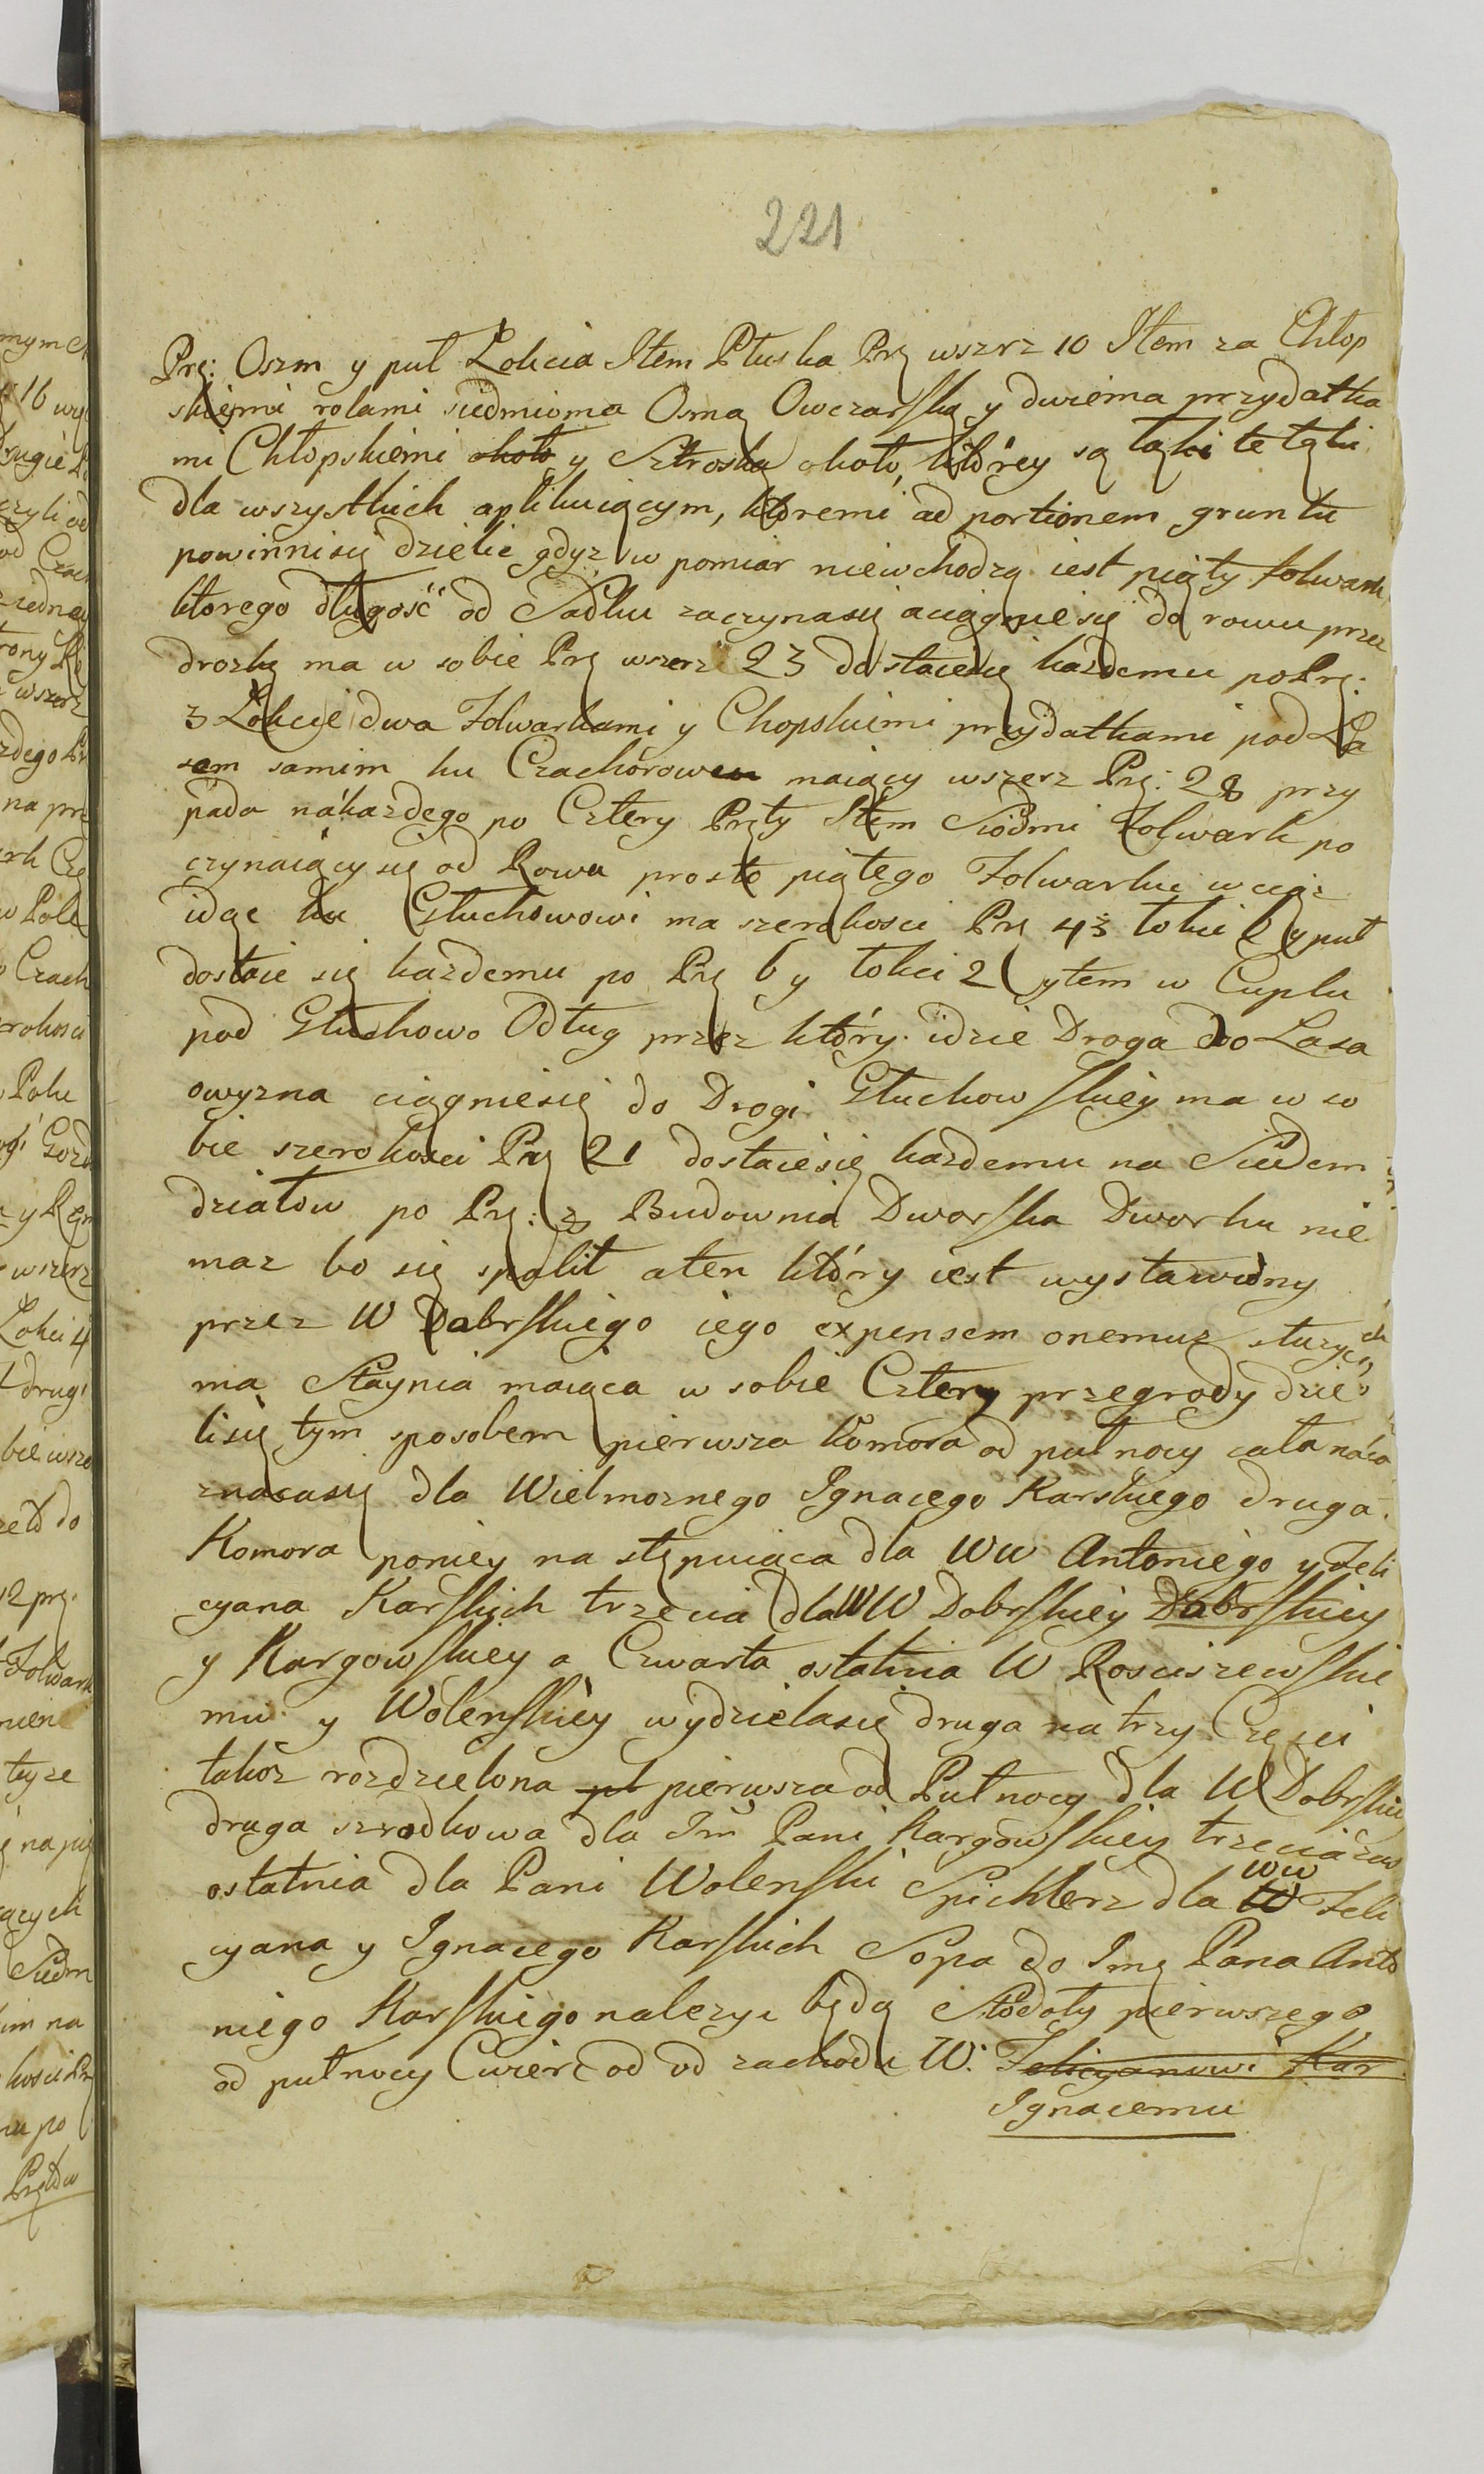 221
Prę: Oszm y puł Łokcia Item Płuska Prę wszrz 10 Item za Chłop
skiemi rolami siedmioma Osmą Owczarską y dwiema przydatka
mi Chłopskiemi około y Sztroską około, którey są łąki te łąki
dla wszystkich aplikuiącym, ktoremi ad portionem gruntu
powinnisię dzielic gdyz w pomiar niewchodzą iest piąty folwark
ktorego długość od Sadku zaczynasię aciągniesię do rowu przez
drozkę ma w sobie Prę wszerz 23 dostaiesię kazdemu poPrę:
3 Łokcie dwa Folwarkami y Chopskiemi przydatkami pod La
sem samim ku Czachorowu maiący wszerz Prę: 28 przy
pada nakazdego po Cztery Pręty Item Siodmi Folwark po
czynaiący się od Rowu prosto piątego Folwarku wciąz
idąc ku Głuchowowi ma szerokosci Prę 43 łokci 6 y puł
dostaie się kazdemu po Prę 6 y łokci 2 ytem w Cuplu
pod Głuchowo Odług przez który idzie Droga do Lasa
owyzna ciągniesię do Drogi Głuchowskiey ma w so
bie szerokosci Prę 21 dostaiesię kazdemu na Siedem
działow po Prę: 3 Budownia Dworska Dworku nie
masz bo się spalił aten który iest wystawiony
przez W Dabrskiego iego expensem onemuz słuzyc
ma Staynia maiąca w sobie Cztery przegrody dzie
lisię tym sposobem pierwsza komora od pułnocy cała náco
znacasię dla Wielmoznego Ignacego Karskiego druga
Komora poniey na stępuiąca dla WW Antoniego y Feli
cyana Karskich trzecia dla WW Dobrskiey Dabrskiey
y Kargowskiey a Czwarta ostatnia W Rosciszewskie
mu y Wolenskiey wydzielasię druga na trzy Częsci
takoz rozdzielona pierwsza od Pułnocy dla W Dobrskiey
druga szrodkowa dla Im Pani Kargowskiey trzecia zas
ostatnia dla Pani Wolenski Spichlerz dla WW Feli
cyana y Ignacego Karskich Sopa do Img Pana Anto
niego Karskiego nalezyc będą Stodoły pierwszego
od pułnocy Cwierc od od zachodu W: Felicyanowi Kar
Ignacemu